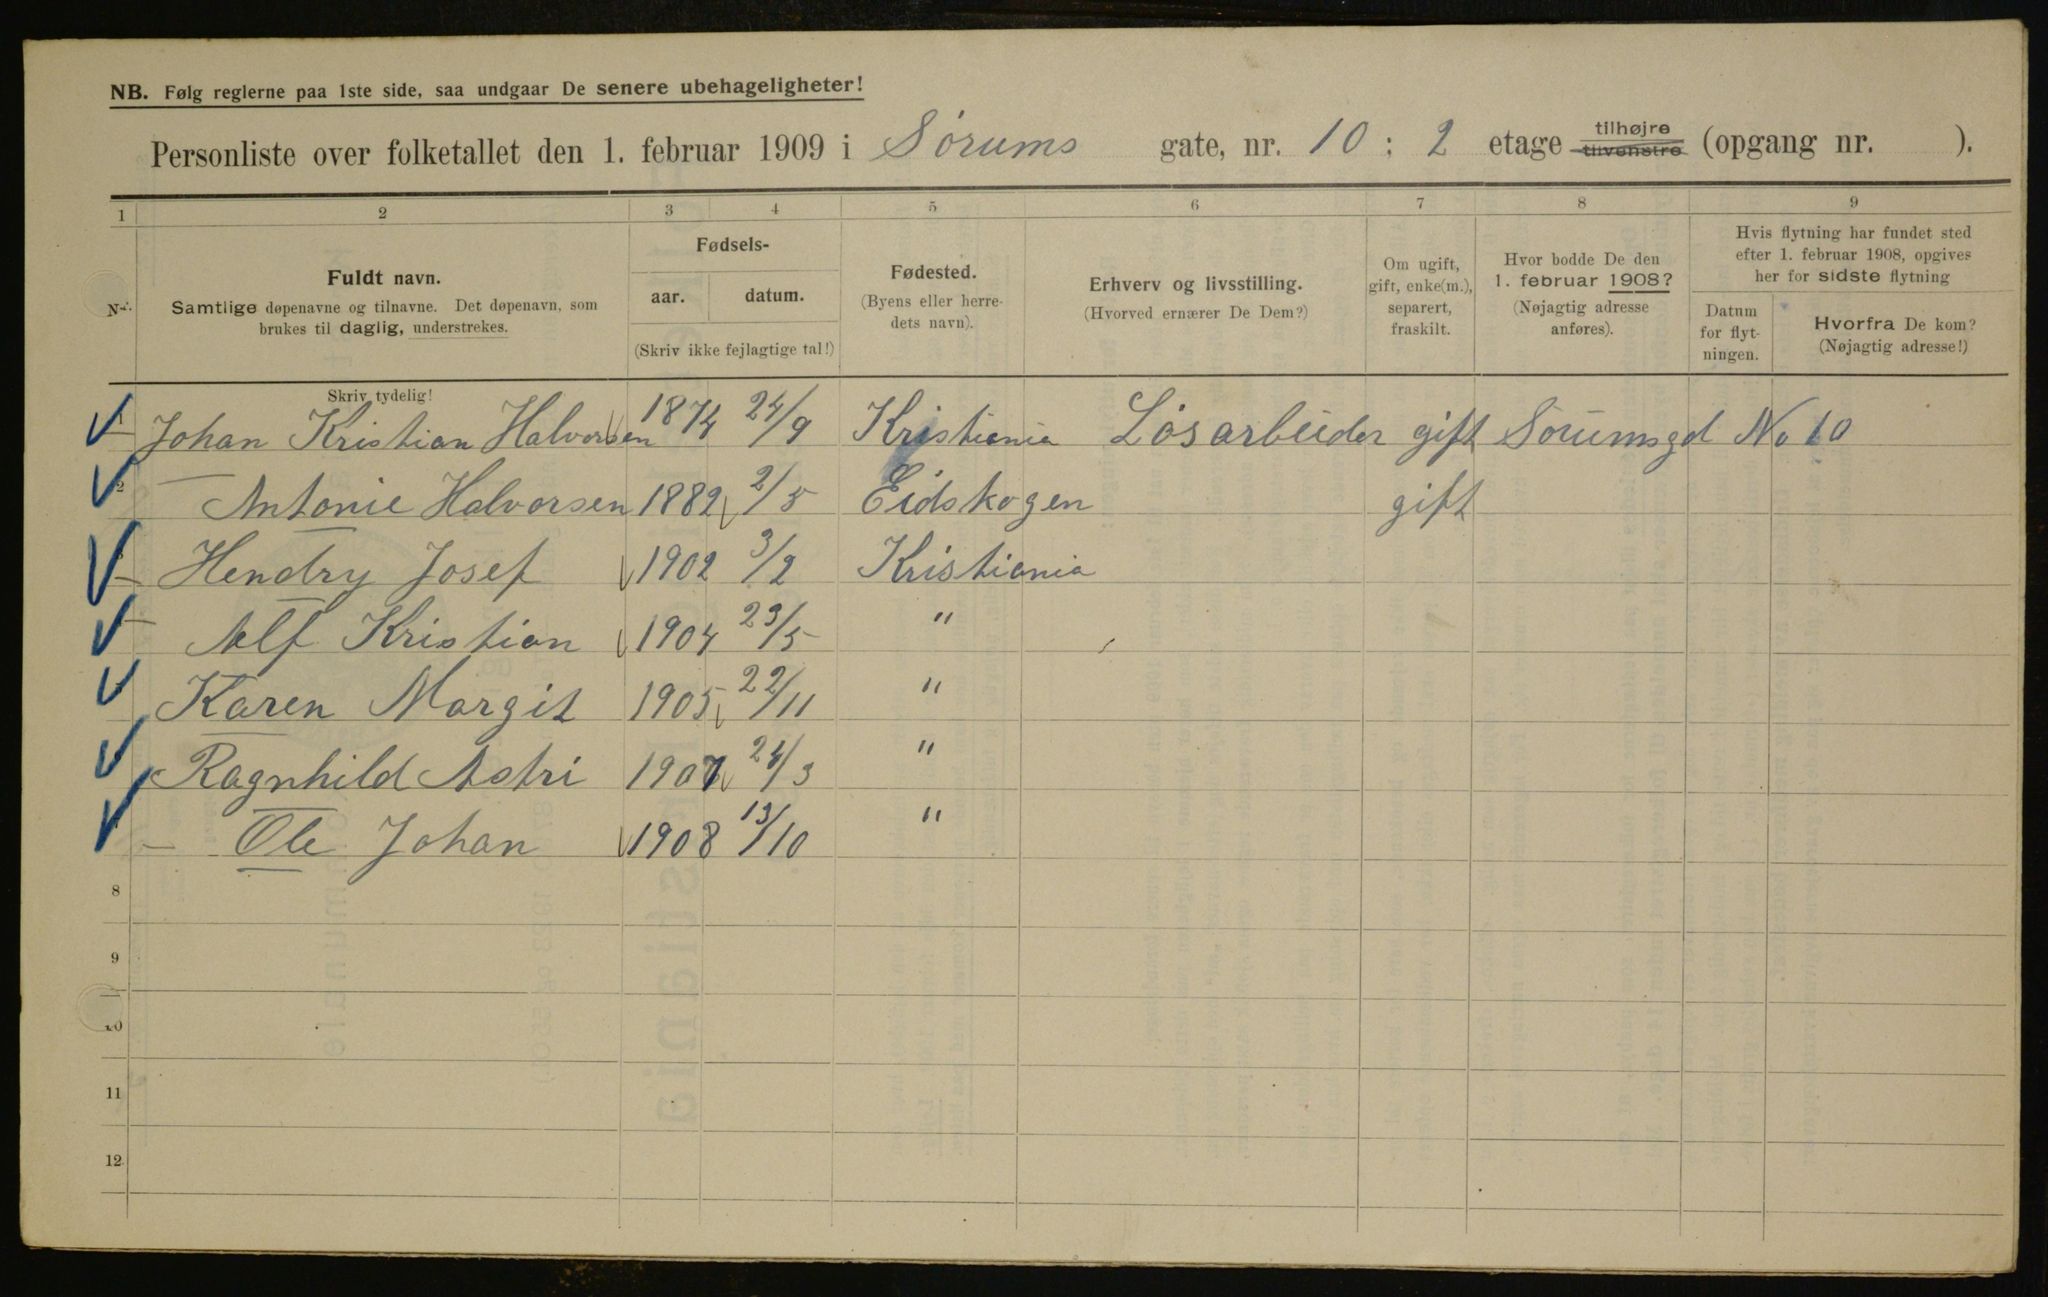 NB. Følg reglerne paa 1ste side, saa undgaar De senere ubehageligheter!
Personliste over folketallet den 1. februar 1909 i Sørums gate, nr. 10 ; 2 etage tilhøjre tilvenstre (opgang nr. ).
1 2 3 4 5 6 7 8 9
Nr. Fuldt navn. Samtlige døpenavne og tilnavne. Det døpenavn, som brukes til daglig, understrekes.
Fødsels- aar. datum. (Skriv ikke fejlagtige tal!)
Fødested. (Byens eller herredets navn).
Erhverv og livsstilling. (Hvorved ernærer De Dem?)
Om ugift, gift, enke(m.), separert, fraskilt.
Hvor bodde De den 1. februar 1908? (Nøjagtig adresse anføres).
Hvis flytning har fundet sted efter 1. februar 1908, opgives her for sidste flytning
Datum for flytningen. Hvorfra De kom? (Nøjagtig adresse!)
Skriv tydelig!
1 Johan Kristian Halvorsen 1874 24/9 Kristiania Løsarbeider gift Sørumsgd No 10
2 Antonie Halvorsen 1882 2/5 Eidskogen gift
3 Hendry Josef 1902 3/2 Kristiania
Alf Kristian 1904 23/5 "
Karen Margit 1905 22/11 "
Ragnhild Astri 1907 24/3 "
Ole Johan 1908 13/10 "
8
9
10
11
12